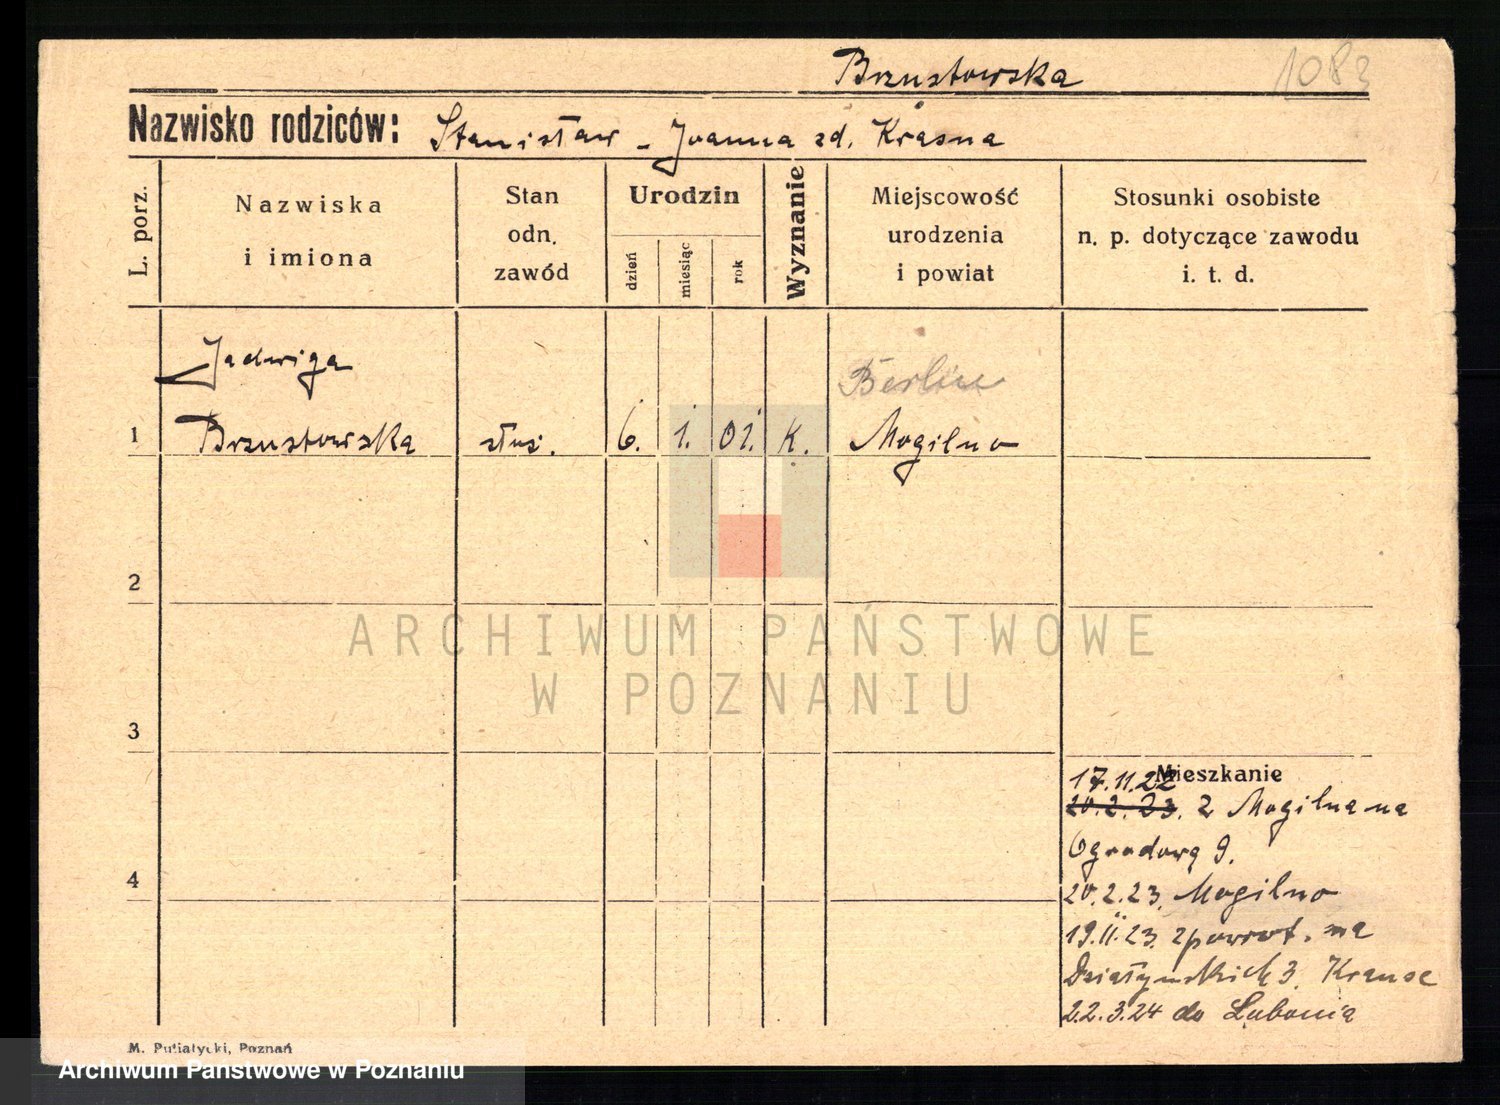 Brzustowska 1083
Nazwisko rodziców: Stanisław - Joanna zd. Krasna
L. porz.
Nazwiska
i imiona
Stan
odn.
zawód
Urodzin
dzień
miesiąc
rok
Wyznanie
Miejscowość
urodzenia
i powiat
Stosunki osobiste
n. p. dotyczące zawodu
i. t. d.
Jadwiga Berlin
1 Brzustowska służ. 6. 1. 01. K. Mogilno
2
ARCHIWUM PAŃSTWOWE
W POZNANIU
3
Mieszkanie
17.11.22
20.2.23. z Mogilna na
Ogrodową 9.
4
20.2.23. Mogilno
19.II.23. zpowrot. na
Działyńskich 3. Krause
22.3.24 do Lubonia
M. Putiatycki, Poznań
Archiwum Państwowe w Poznaniu